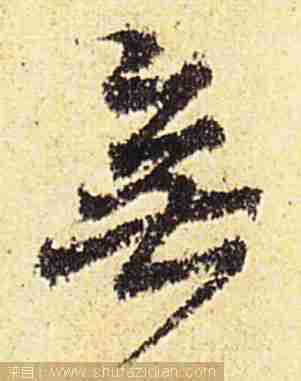 無
来自：www.shufazidian.com